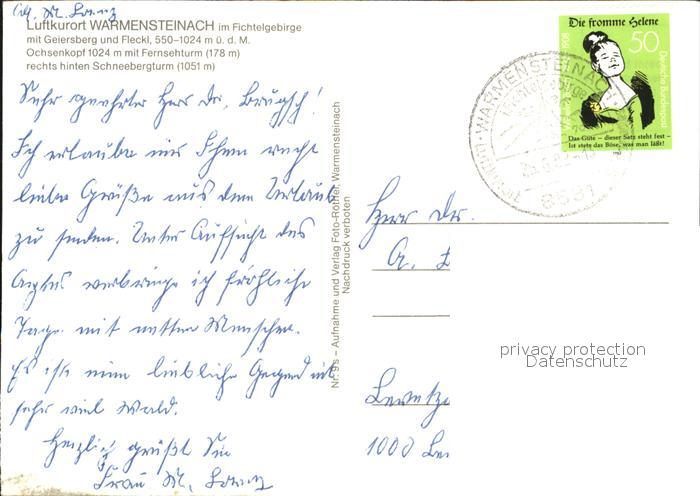 Luftkurort WARMENSTEINACH im Fichtelgebirge
mit Geiersberg und Fleckl, 550–1024 m ü. d. M.
Ochsenkopf 1024 m mit Fernsehturm (178 m)
rechts hinten Schneebergturm (1051 m)
Sehr geehrter Herr Dr.
Ich erlaube mir Ihnen recht
liebe Grüße aus dem Urlaub
zu senden. Unter Aufsicht des
Arztes verbringe ich fröhliche
Tage mit netten Menschen.
Es ist eine liebliche Gegend mit
sehr viel Wald.
Herzlich grüßt Sie
Frau M.
Nr. 9 s – Aufnahme und Verlag Foto-Rottler, Warmensteinach
Nachdruck verboten
Die fromme Helene
1908
50
Deutsche Bundespost
Das Gute – dieser Satz steht fest –
Ist stets das Böse, was man läßt!
WARMENSTEINACH
8581
Herrn Dr.
A.
1000
privacy protection
Datenschutz